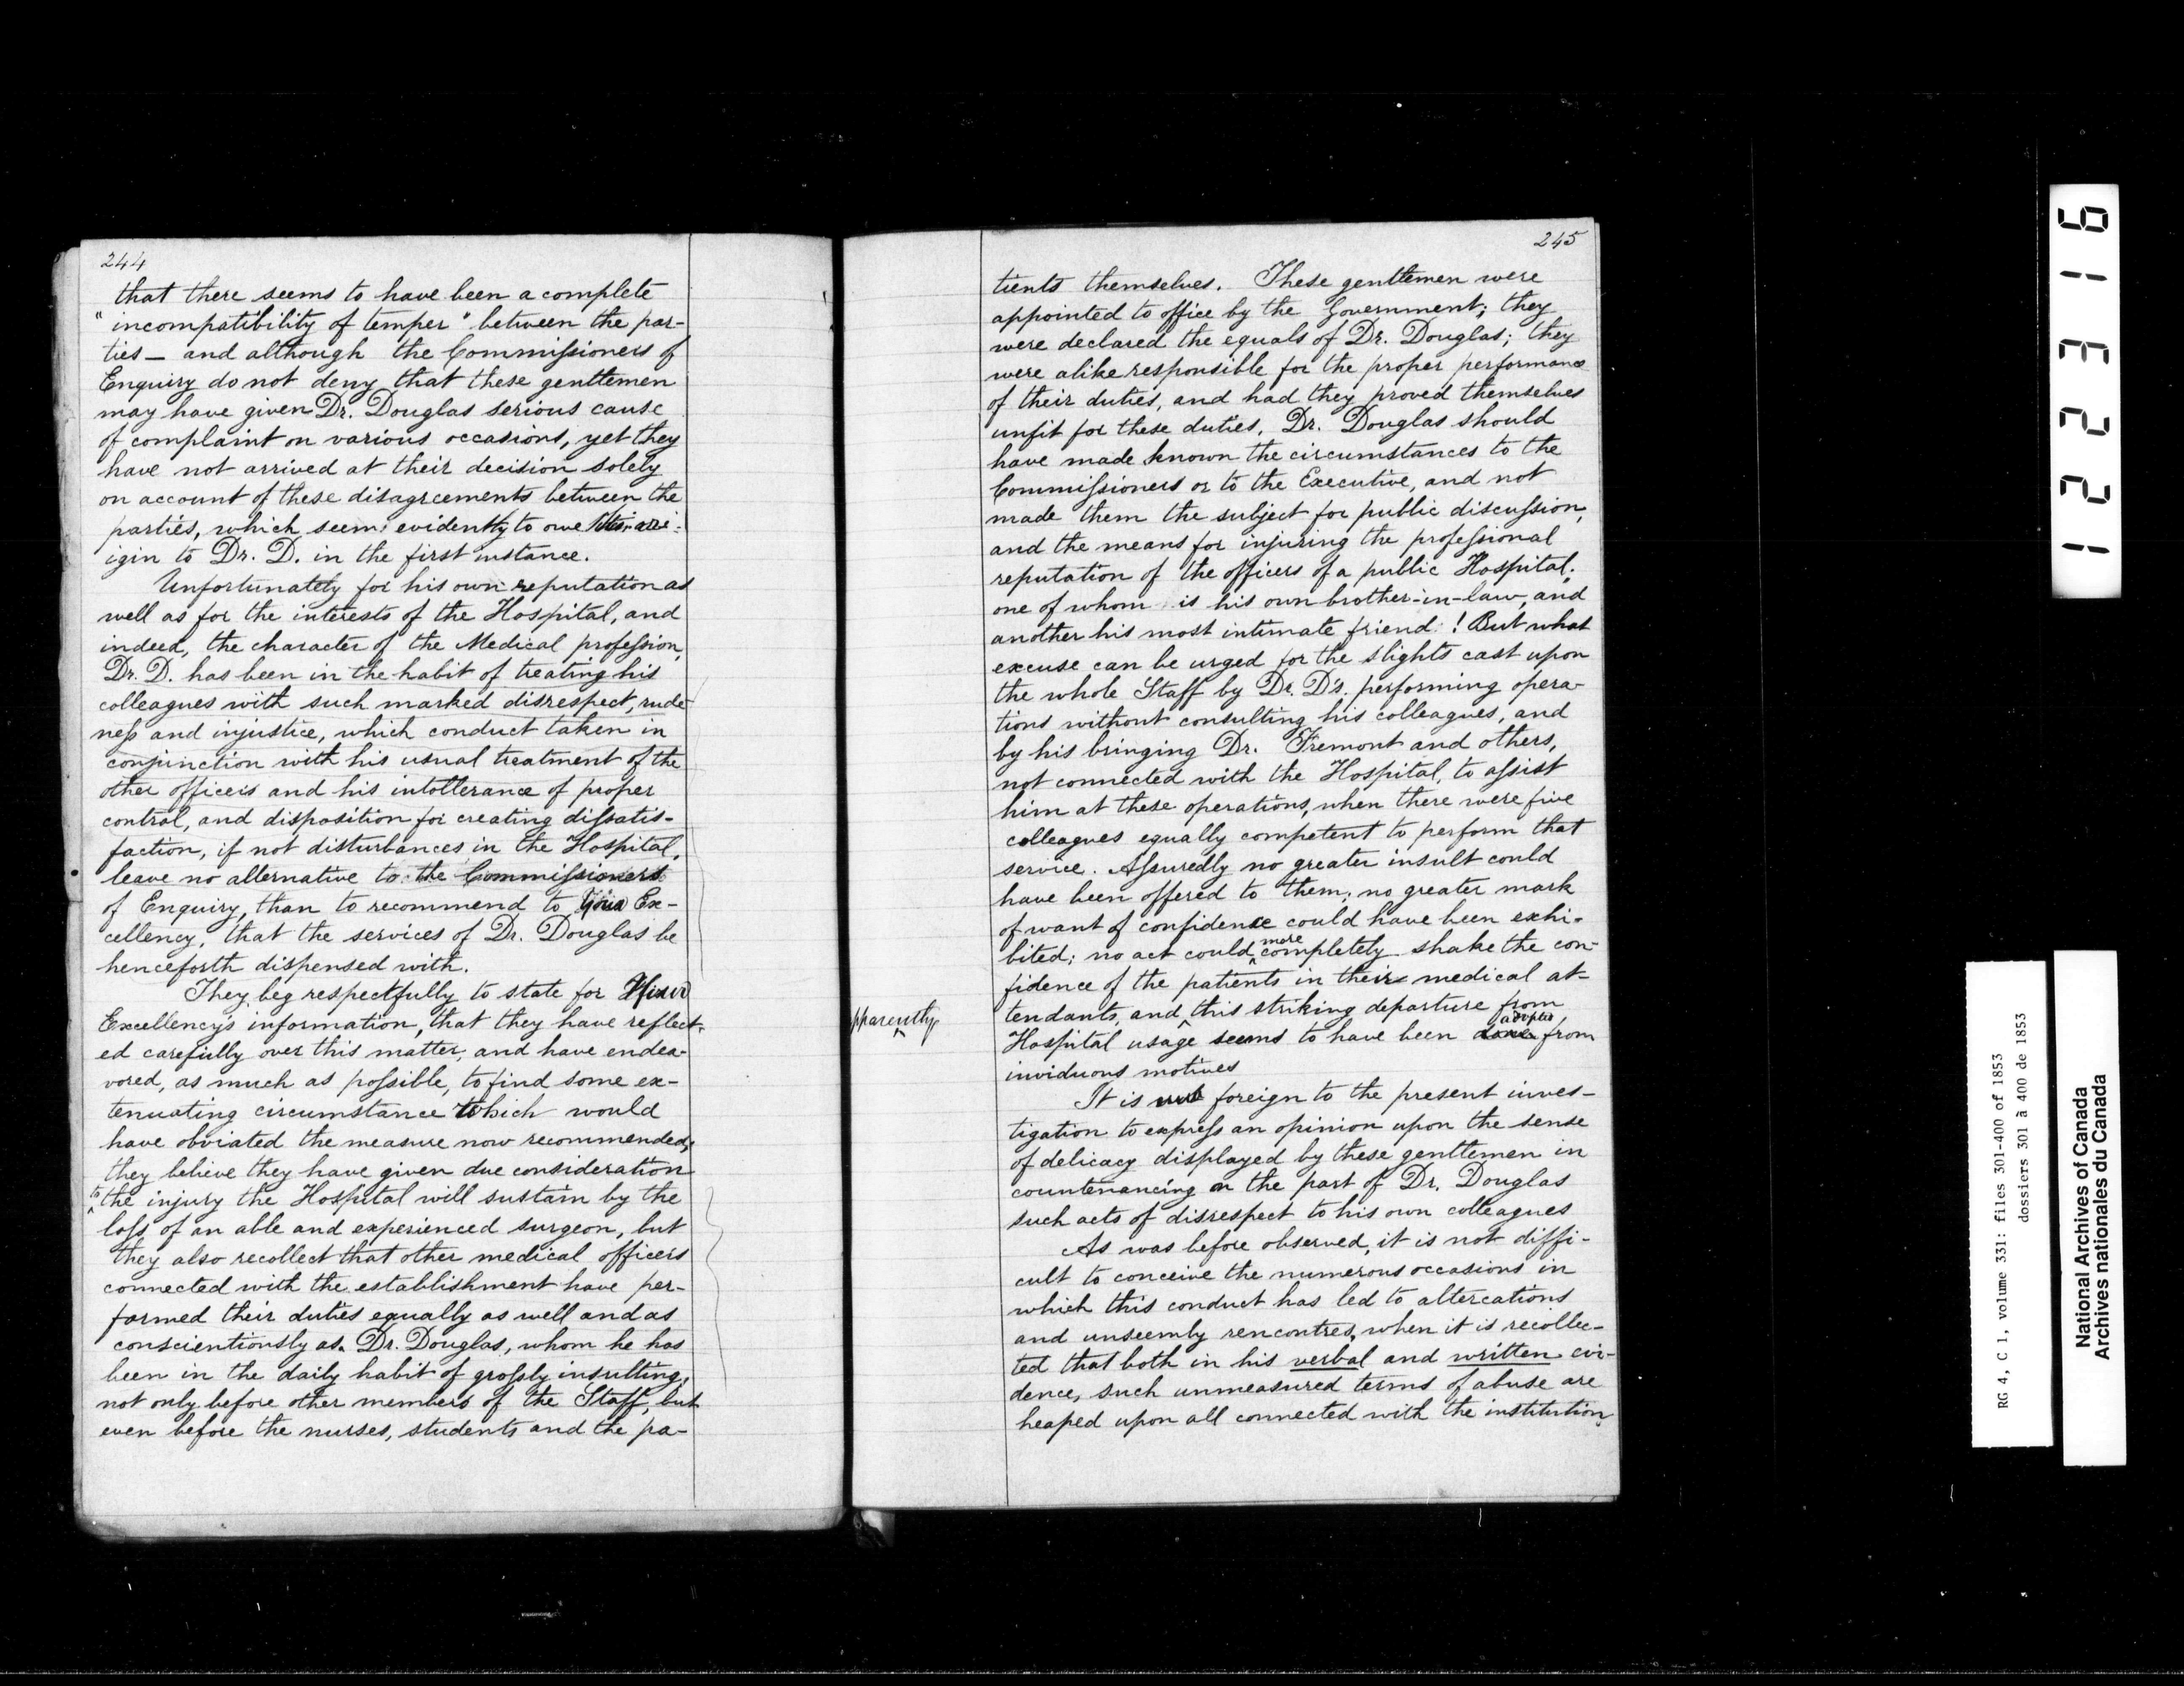 244
that there seems to have been a complete
"incompatibility of temper" between the par-
ties — and although the Commissioners of
Enquiry do not deny that these gentlemen
may have given Dr. Douglas serious cause
of complaint on various occasions, yet they
have not arrived at their decision solely
on account of these disagreements between the
parties, which seem evidently to owe
igin to Dr. D. in the first instance.
Unfortunately for his own reputation as
well as for the interests of the Hospital, and
indeed, the character of the Medical profession,
Dr. D. has been in the habit of treating his
colleagues with such marked disrespect, rude-
ness and injustice, which conduct taken in
conjunction with his usual treatment of the
other officers and his intollerance of proper
control, and disposition for creating dissatis-
faction, if not disturbances in the Hospital,
leave no alternative to the Commissioners
of Enquiry, than to recommend to Your Ex-
cellency, that the services of Dr. Douglas be
henceforth dispensed with.
They beg respectfully to state for
Excellency's information, that they have reflect-
ed carefully over this matter, and have endea-
vored, as much as possible, to find some ex-
tenuating circumstance which would
have obviated the measure now recommended;
they believe they have given due consideration
to the injury the Hospital will sustain by the
loss of an able and experienced surgeon, but
they also recollect that other medical officers
connected with the establishment have per-
formed their duties equally as well and as
conscientiously as Dr. Douglas, whom he has
been in the daily habit of grossly insulting,
not only before other members of the Staff, but
even before the nurses, students and the pa-
245
tients themselves. These gentlemen were
appointed to office by the Government; they
were declared the equals of Dr. Douglas; they
were alike responsible for the proper performance
of their duties, and had they proved themselves
unfit for these duties, Dr. Douglas should
have made known the circumstances to the
Commissioners or to the Executive, and not
made them the subject for public discussion,
and the means for injuring the professional
reputation of the officers of a public Hospital;
one of whom is his own brother-in-law, and
another his most intimate friend! But what
excuse can be urged for the slights cast upon
the whole Staff by Dr. D's. performing opera-
tions without consulting his colleagues, and
by his bringing Dr. Fremont and others,
not connected with the Hospital, to assist
him at these operations, when there were five
colleagues equally competent to perform that
service. Assuredly no greater insult could
have been offered to them; no greater mark
of want of confidence could have been exhi-
bited; no act could more completely shake the con-
fidence of the patients in their medical at-
tendants, and pparently this striking departure from
Hospital usage seems to have been done adopted from
inviduous motives
It is not foreign to the present inves-
tigation to express an opinion upon the sense
of delicacy displayed by these gentlemen in
countenancing on the part of Dr. Douglas
such acts of disrespect to his own colleagues
As was before observed, it is not diffi-
cult to conceive the numerous occasions in
which this conduct has led to altercations
and unseemly rencontres, when it is recollec-
ted that both in his verbal and written evi-
dence, such unmeasured terms of abuse are
heaped upon all connected with the institution
122316
RG 4, C 1, volume 331: files 301-400 of 1853
dossiers 301 à 400 de 1853
National Archives of Canada
Archives nationales du Canada